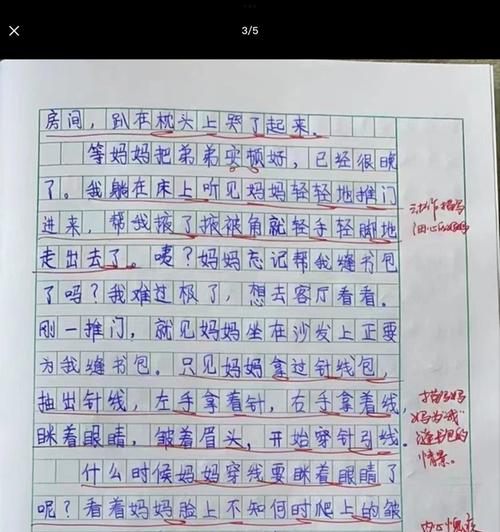 3/5
房间，趴在枕头上哭了起来。
等妈妈把弟弟安顿好，已经很晚
了。我躺在床上听见妈妈轻轻地推门
进来，帮我掖了掖被角就轻手轻脚地
走出去了。咦？妈妈忘记帮我缝书包
了吗？我难过极了，想去客厅看看。
刚一推门，就见妈妈坐在沙发上正要
为我缝书包。只见妈妈拿过针线包，
抽出针线，左手拿着针，右手拿着线，
眯着眼睛，皱着眉头，开始穿针引线。
什么时候妈妈穿线要眯着眼睛了
呢？看着妈妈脸上不知何时爬上的皱
动作描写
描写妈
妈为“我”
缝书包的
情景。